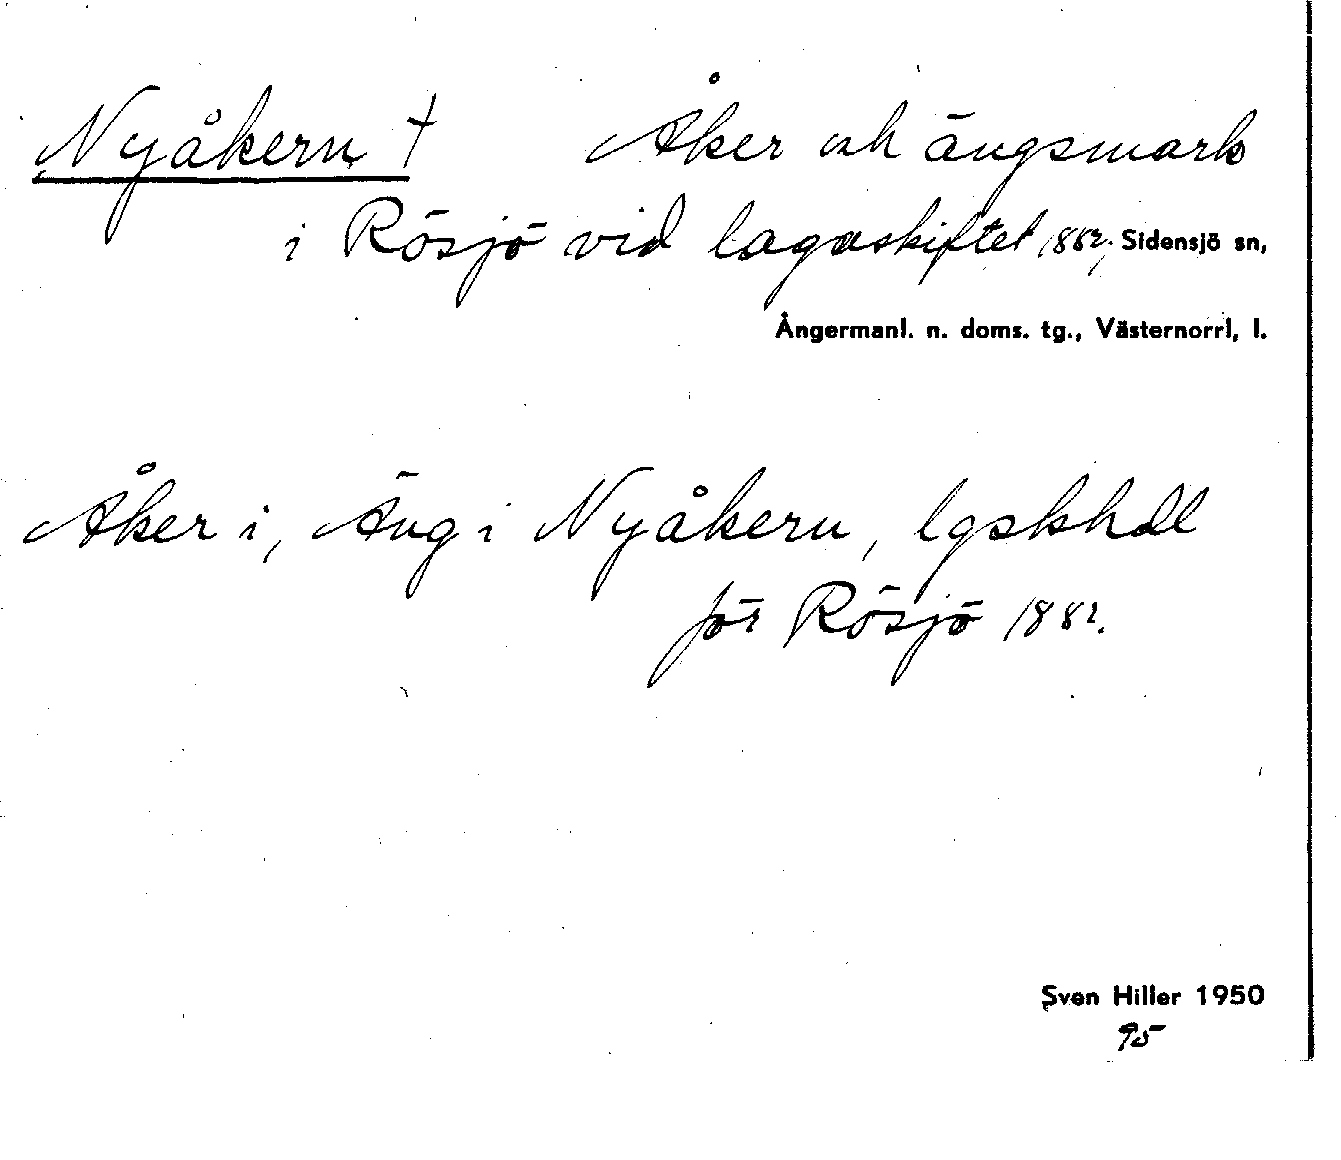 Nyåkern † Åker och ängsmark
i Rösjö vid lagaskiftet 1882, Sidensjö sn,
Ångermanl. n. doms. tg., Västernorrl, l.
Åker i, Äng i Nyåkern, lgskhdl
för Rösjö 1882.
Sven Hiller 1950
95